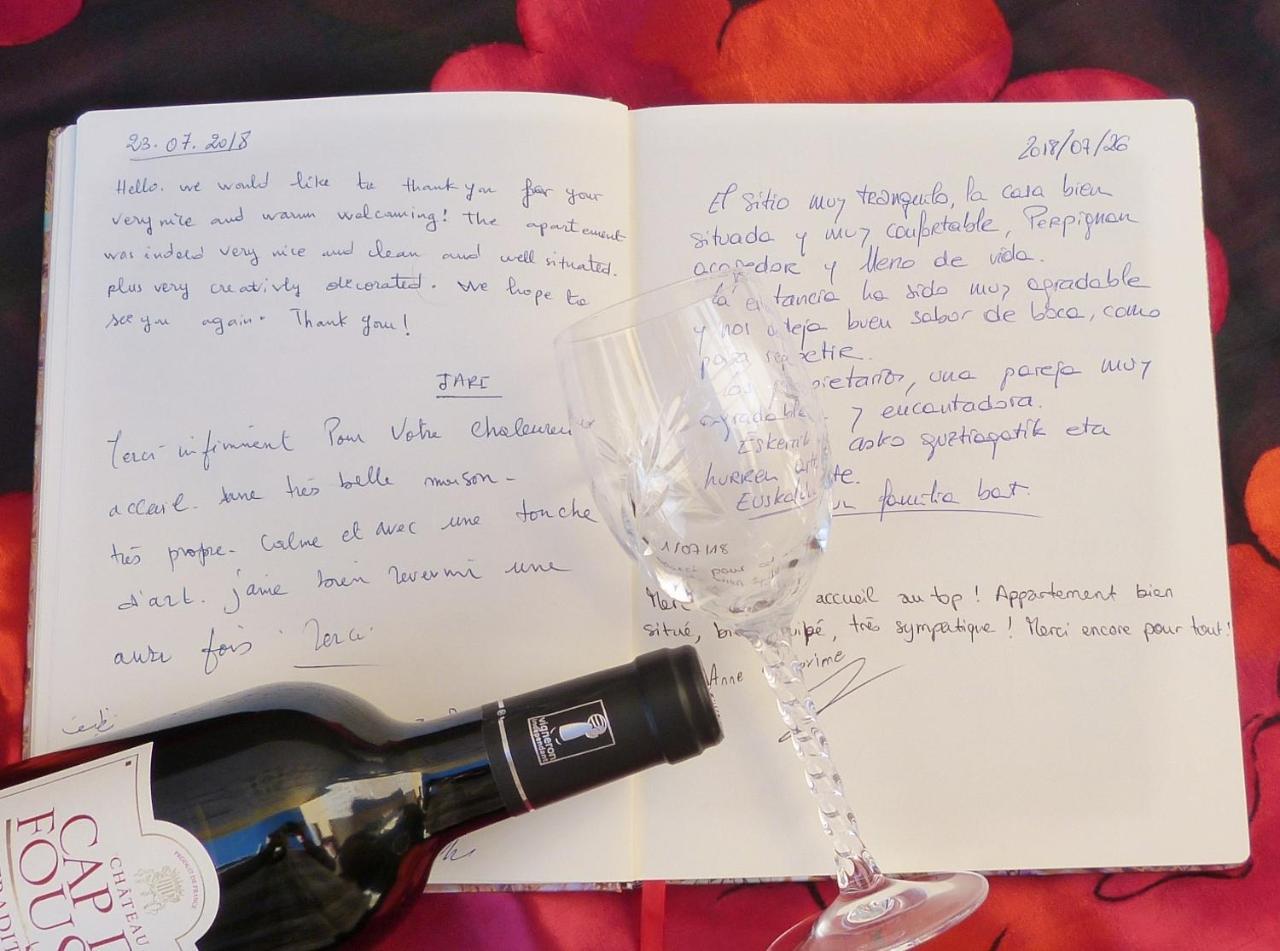 23. 07. 2018
Hello. we would like to thank you for your
very nice and warm welcoming! The apartement
was indeed very nice and clean and well situated.
plus very creativly decorated. We hope to
see you again. Thank you!
JARI
Merci infiniment Pour Votre chaleureux
accueil. une très belle maison -
très propre. Calme et avec une touche
d'art. j'aime bien revenir une
autre fois. Merci
2018/07/26
El sitio muy tranquilo, la casa bien
situada y muy confortable, Perpignan
acogedor y lleno de vida.
La estancia ha sido muy agradable
y nos deja buen sabor de boca, como
para repetir.
Los propietarios, una pareja muy
agradable y encantadora.
Eskerrik asko guztiagatik eta
hurren arte.
Euskal familia bat.
1/07/18
pour
Merci accueil au top! Appartement bien
situé, bien équipé, très sympatique! Merci encore pour tout!
Anne
vigneron
indépendant
CHÂTEAU
CAP
FOUS
TRADIT